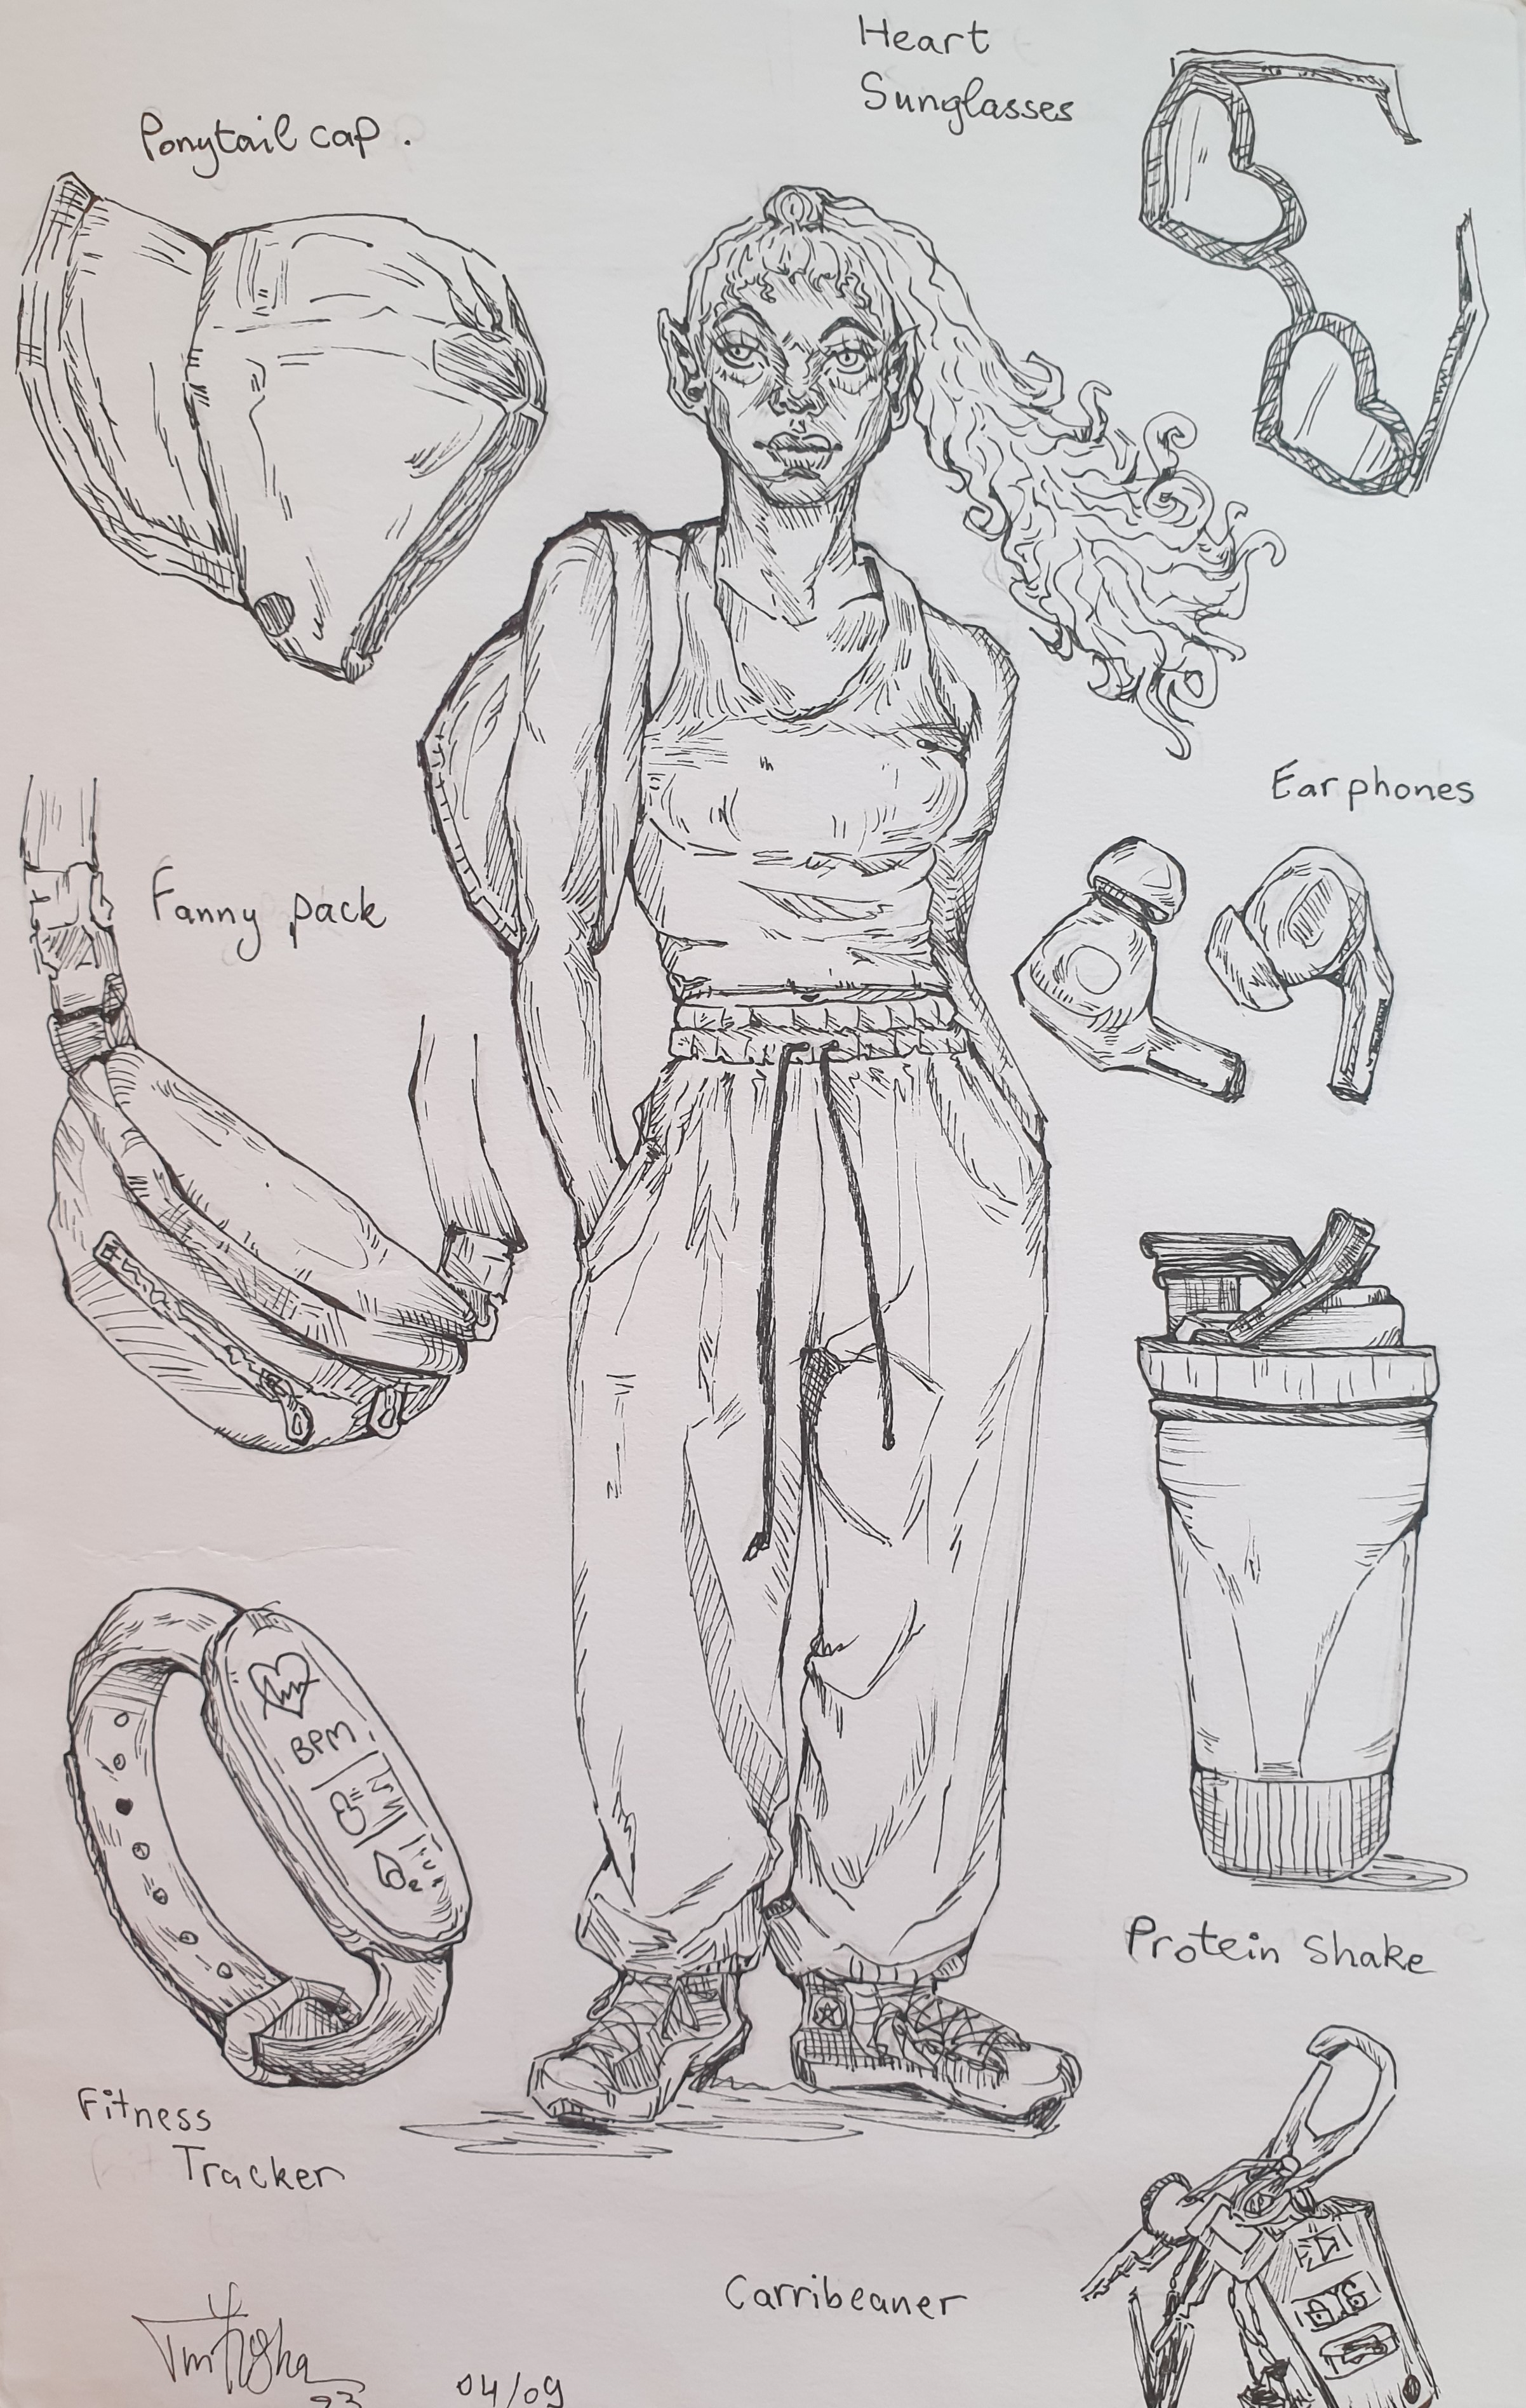 Heart
Sunglasses
Ponytail cap.
Earphones
Fanny pack
BPM
Protein Shake
Fitness
Tracker
Carribeaner
04/09